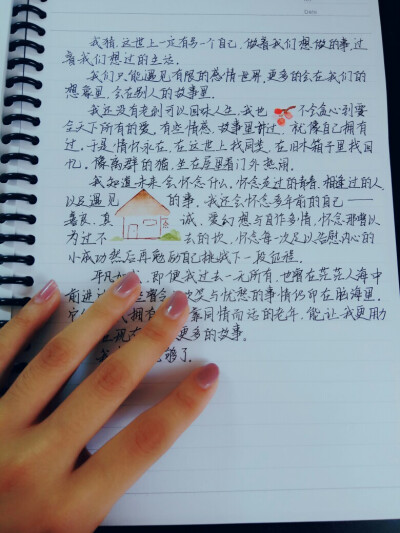 我猜,这世上一定有另一个自己,做着我们想做的事,过
着我们想过的生活。
我们只能遇见有限的感情世界,更多的会在我们的
想象里,会在别人的故事里。
我还没有老到可以回味人生,我也 不会贪心到要
尝天下所有的爱。有些情感,故事里听过,就像自己拥有
过。于是,情怀永在。在这世上找同类,在旧木箱子里找回
忆。像离群的猫,坐在屋里看门外热闹。
我知道未来会怀念什么,怀念走过的青春,相逢过的人
以及遇见 的事。我还会怀念多年前的自己——
善良、真 诚、爱幻想与自作多情。怀念那些以
为过不 去的坎,怀念每一次足以告慰内心的
小成功然后再勉励自己挑战下一段征程。
平凡如 ,即便我过去一无所有,也曾在茫茫人海中
前进 曾 欢笑与忧愁的事情仍印在脑海里。
人拥有 靠回情而活的老年,能让我更用
现在 更多的故事。
够了.